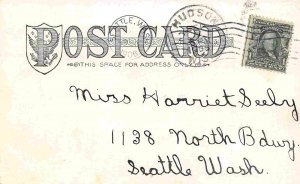 HUDSON
POST CARD
THIS SPACE FOR ADDRESS ONLY
Miss Harriet Seely
1138 North Bdwy.
Seattle Wash.